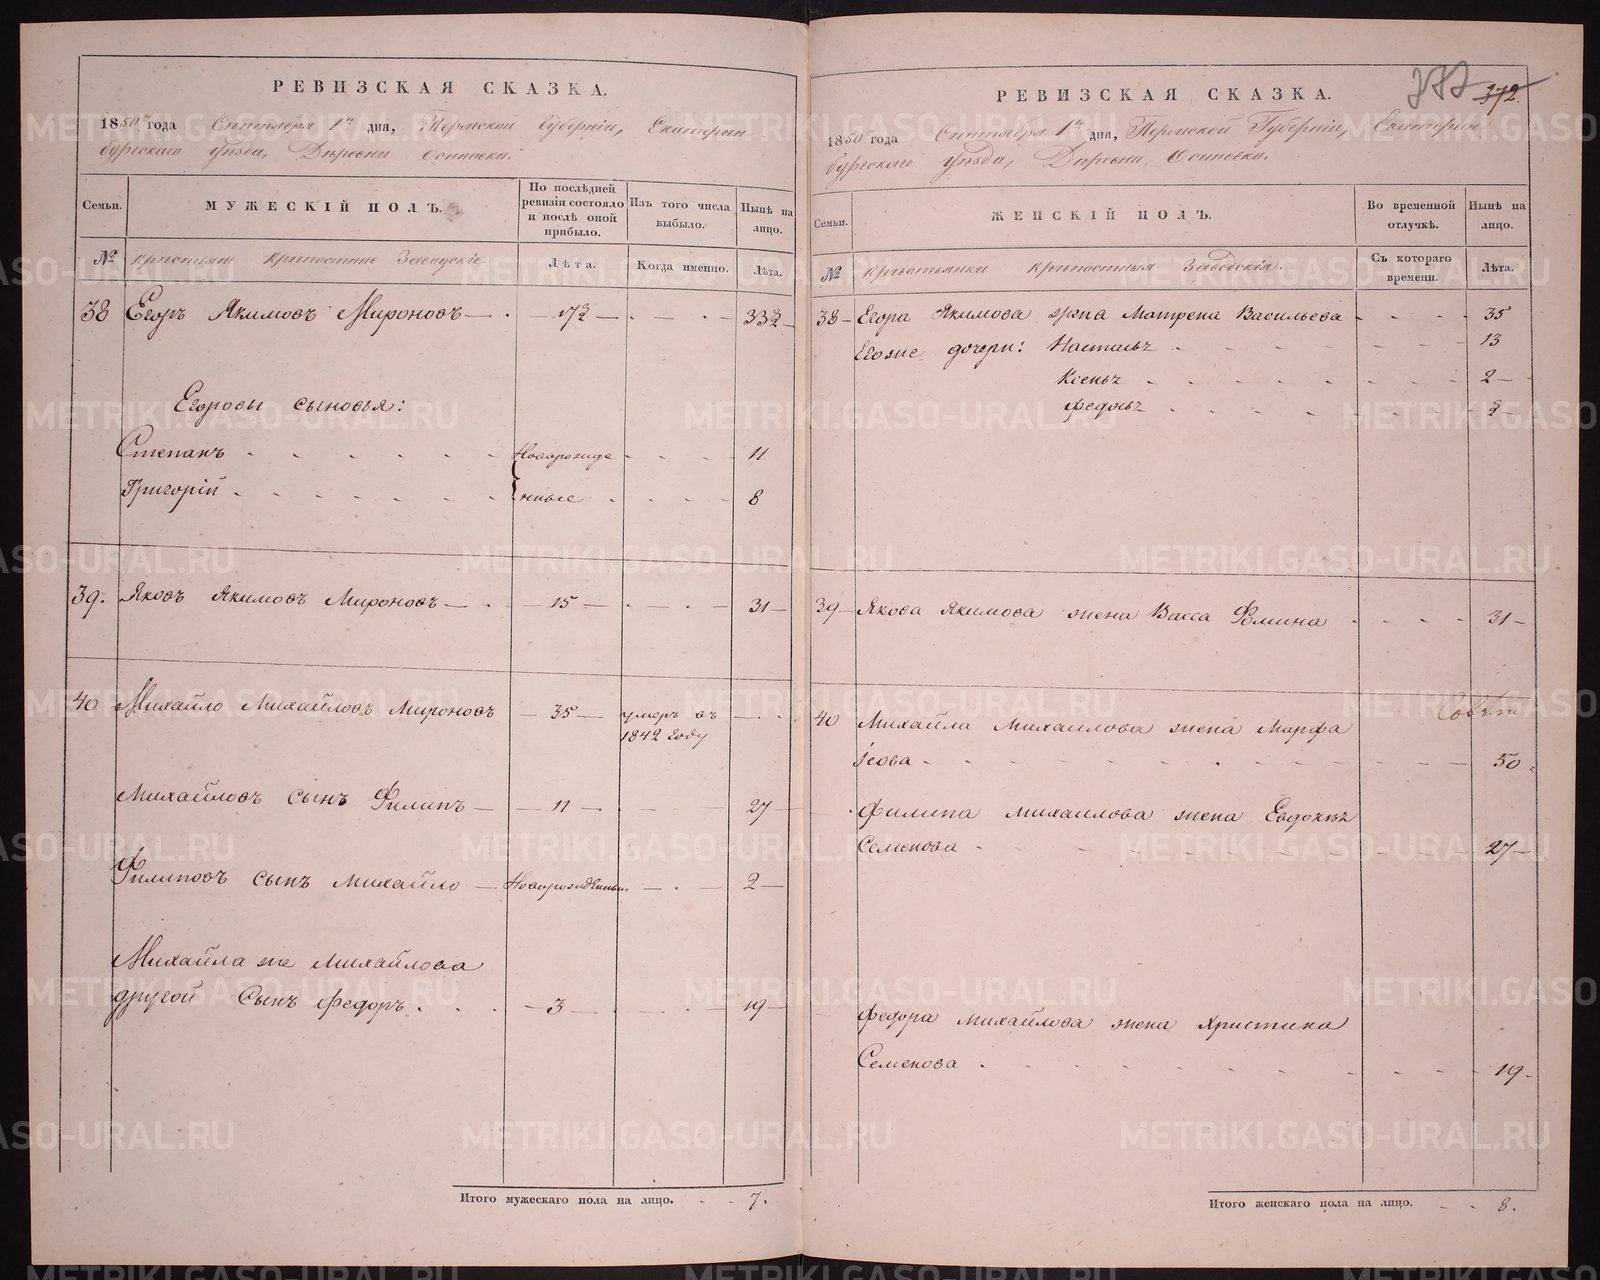 РЕВИЗСКАЯ СКАЗКА.
1850го года Сентября 1го дня, Пермской Губернiи, Екатерин
бургскаго Уѣзда, Деревни Осиновки.
Семьи.
МУЖЕСКІЙ ПОЛЪ.
По послѣдней
ревизіи состояло
и послѣ оной
прибыло.
Изъ того числа
выбыло.
Нынѣ на
лицо.
№
крестьяне крѣпостные Заводскіе
Лѣта.
Когда именно.
Лѣта.
38 Егоръ Якимовъ Мироновъ
Егоровы сыновья:
Степанъ Новорожде 11
Григорій нные 8
39. Яковъ Якимовъ Мироновъ 15 31
40 Михайло Михайловъ Мироновъ 35 умеръ въ
1842 году
Михайловъ сынъ Филипъ 11 27
Филиповъ сынъ Михайло Новорожденный 2
Михайла же Михайлова
другой Сынъ Федоръ 3 19
Итого мужескаго пола на лицо. 7.
372.
РЕВИЗСКАЯ СКАЗКА.
1850го года Сентября 1го дня, Пермской Губерніи, Екатерин
бургскаго Уѣзда, Деревни Осиновки.
Семьи.
ЖЕНСКІЙ ПОЛЪ.
Во временной
отлучкѣ.
Нынѣ на
лицо.
№
крестьянки крѣпостныя Заводскія.
Съ котораго
времени.
Лѣта.
38 Егора Якимова жена Матрена Васильева 35
Егоже дочери: Настасья 13
2
40 Михайла Михайлова жена Марфа
50
39 Якова Якимова жена Васса Фомина 31
Филипа Михайлова жена Евдокѣя
Семенова 27
Федора Михайлова жена Христина
Семенова 19
Итого женскаго пола на лицо. 8.
METRIKI.GASO-URAL.RU